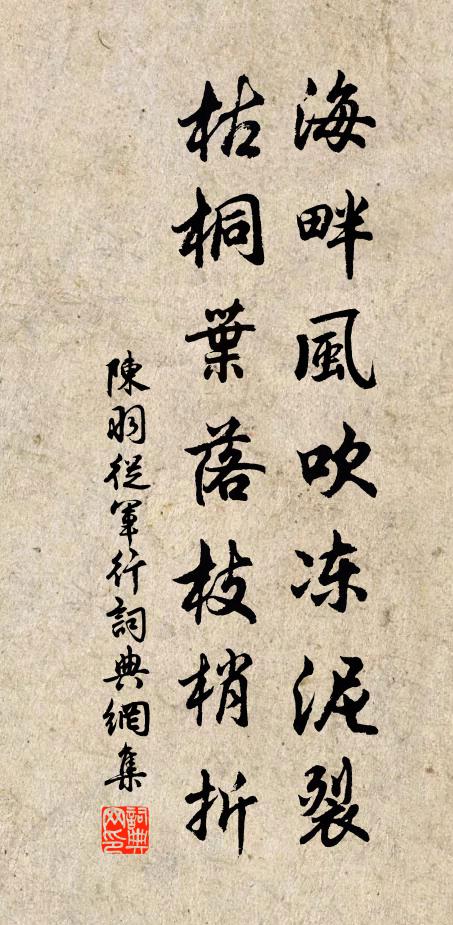 海畔風吹冻泥裂
枯桐葉落枝梢折
陳羽從軍行詞典網集
詞典网印